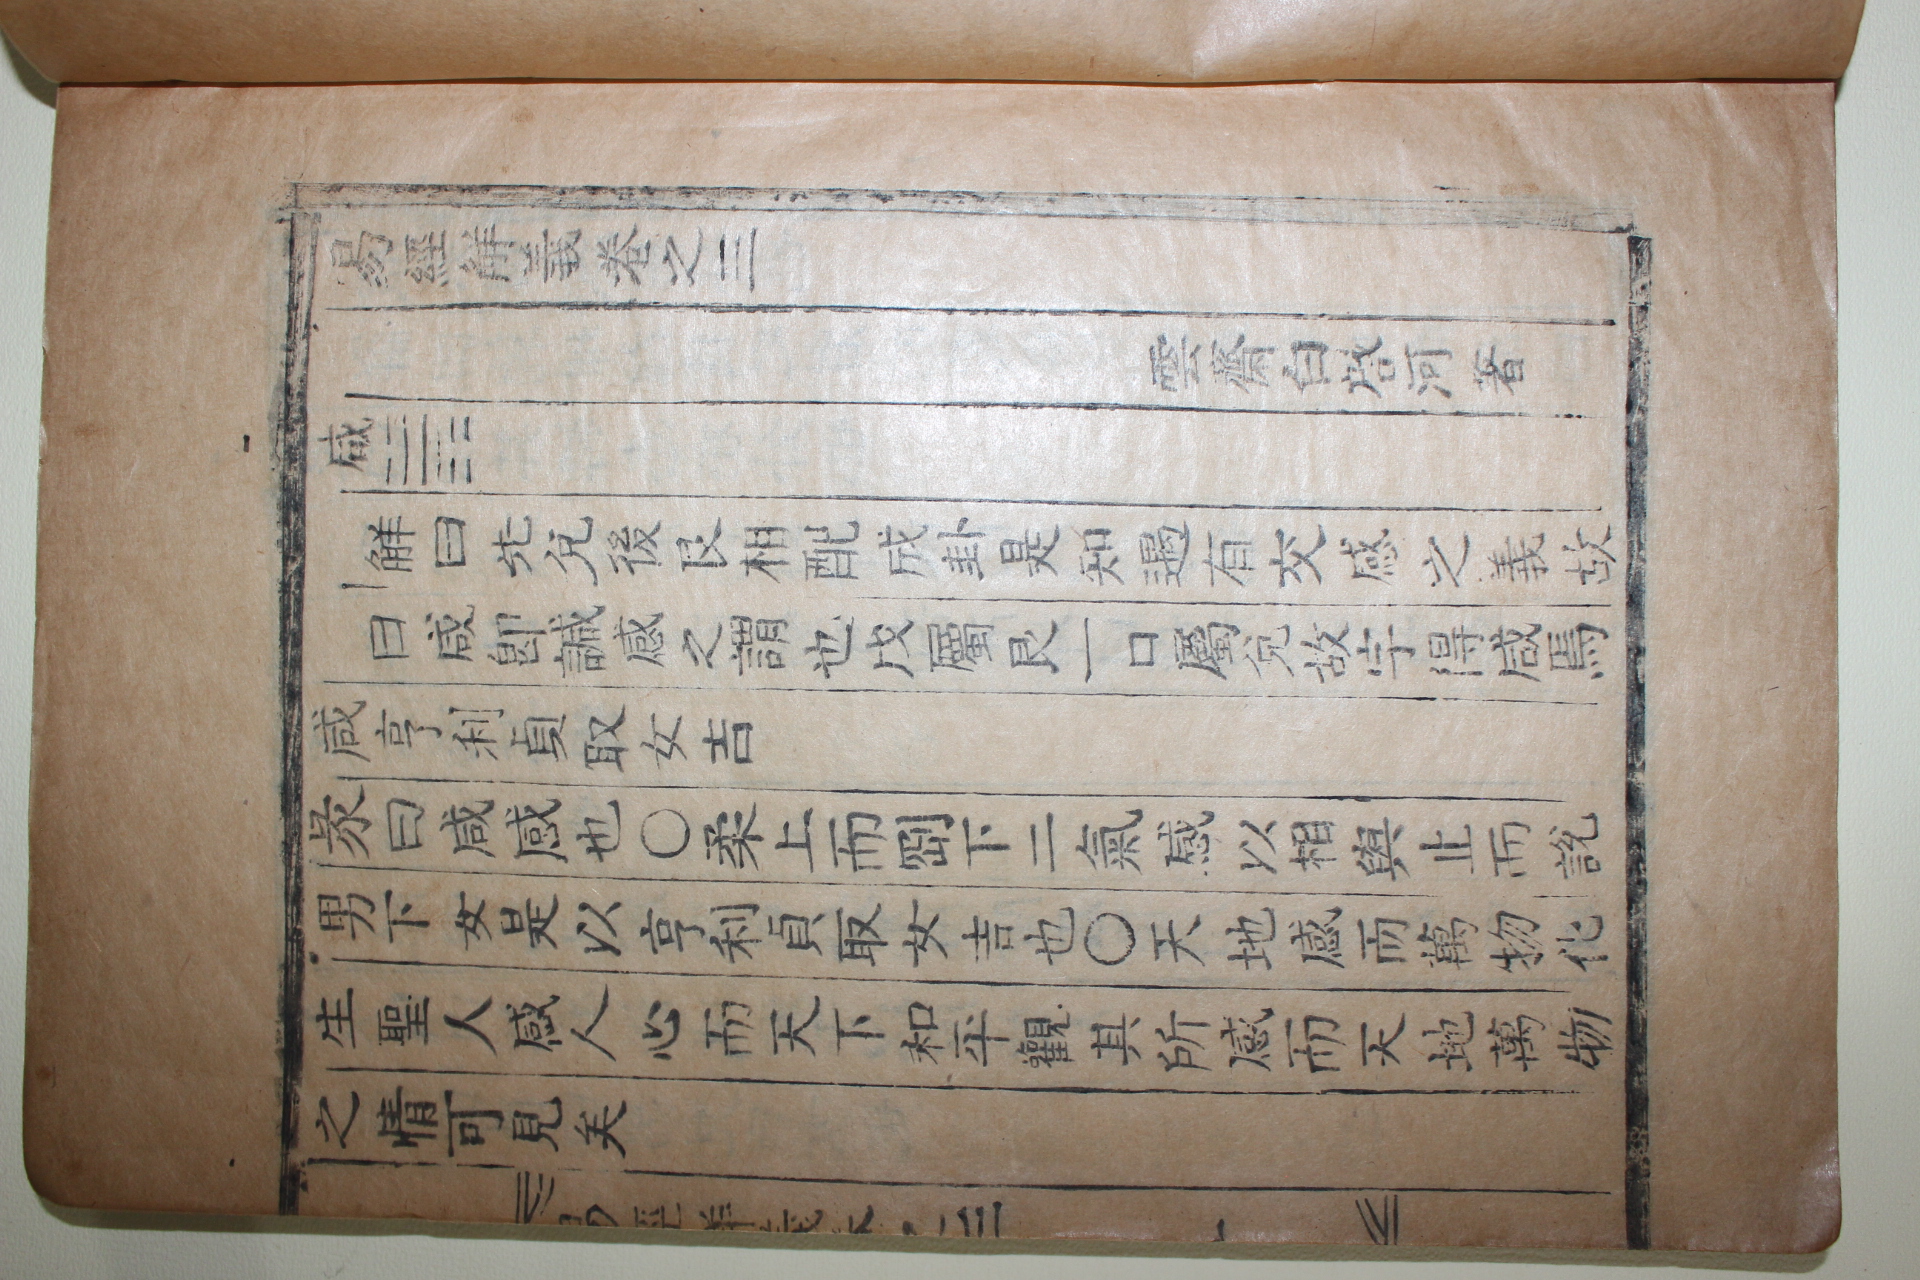 易經解義卷之三
雲齋白燦河著
咸䷞
解曰先兌後艮相配成卦是知遇有交感之義故
曰咸卽諴感之謂也戊屬艮一口屬兌故字得咸焉
咸亨利貞取女吉
彖曰咸感也〇柔上而剛下二氣感以相與止而說
男下女是以亨利貞取女吉也〇天地感而萬物化
生聖人感人心而天下和平觀其所感而天地萬物
之情可見矣
易經解義卷之三 一